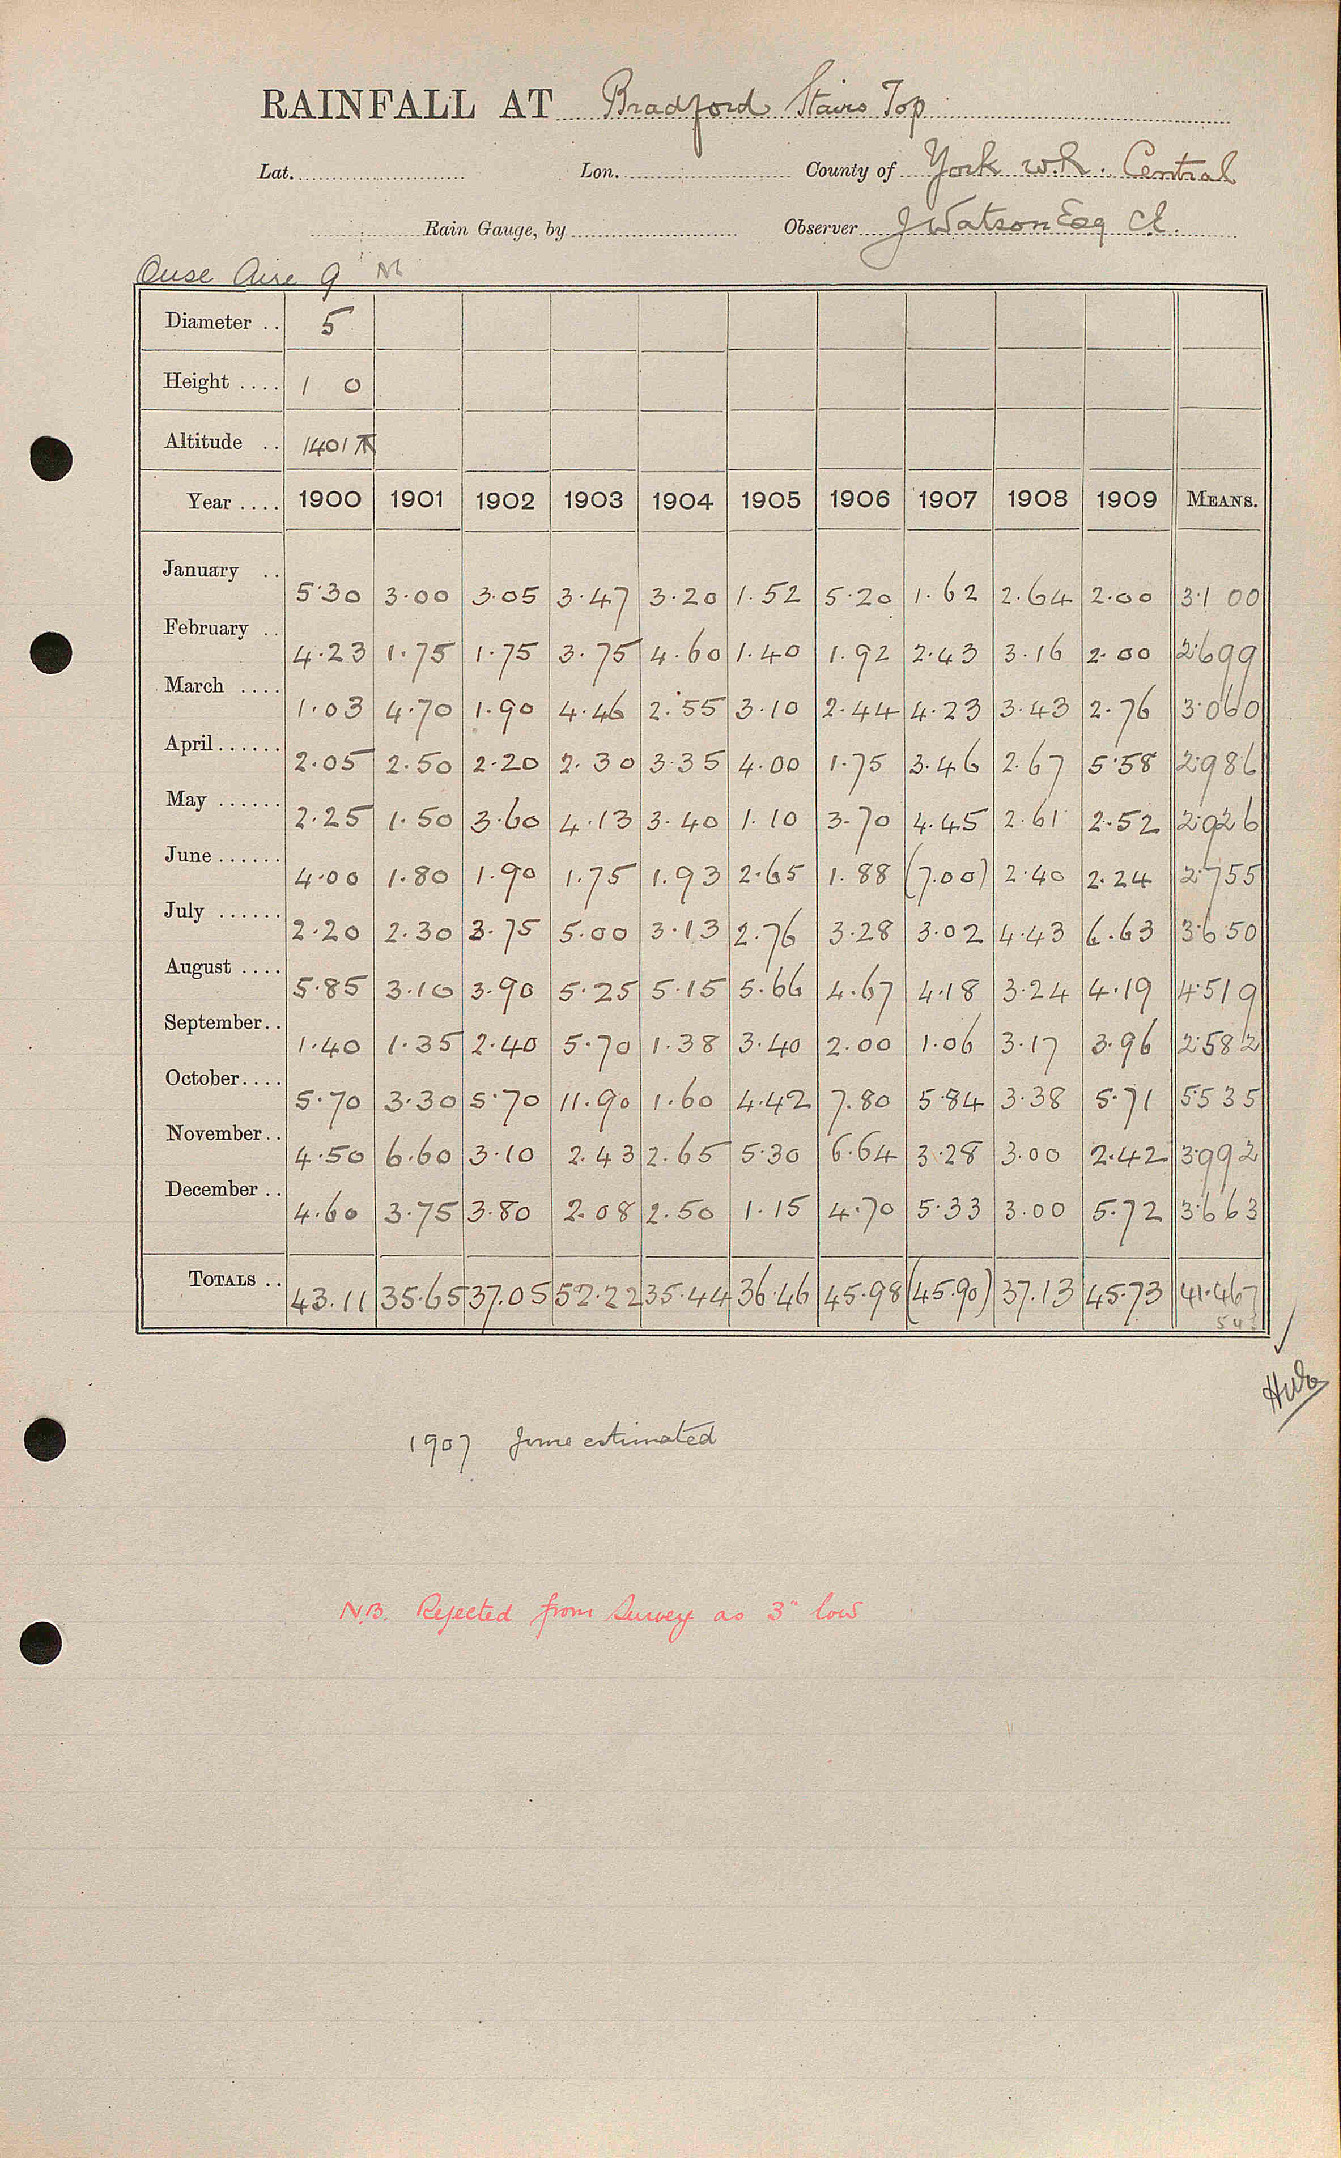 RAINFALL AT Bradford Stairs Top
Lat. Lon. County of York W.R. Central
Rain Gauge, by Observer J Watson Esq CE.
Ouse Aire 9
Diameter .. 5
Height .... 1 0
Altitude .. 1401
Year .... 1900 1901 1902 1903 1904 1905 1906 1907 1908 1909 MEANS.
January .. 5.30 3.00 3.05 3.47 3.20 1.52 5.20 1.62 2.64 2.00 3.100
February .. 4.23 1.75 1.75 3.75 4.60 1.40 1.92 2.43 3.16 2.00 2.699
March .... 1.03 4.70 1.90 4.46 2.55 3.10 2.44 4.23 3.43 2.76 3.060
April ...... 2.05 2.50 2.20 2.30 3.35 4.00 1.75 3.46 2.67 5.58 2.986
May ...... 2.25 1.50 3.60 4.13 3.40 1.10 3.70 4.45 2.61 2.52 2.926
June ...... 4.00 1.80 1.90 1.75 1.93 2.65 1.88 (7.00) 2.40 2.24 2.755
July ...... 2.20 2.30 3.75 5.00 3.13 2.76 3.28 3.02 4.43 6.63 3.650
August .... 5.85 3.10 3.90 5.25 5.15 5.66 4.67 4.18 3.24 4.19 4.519
September.. 1.40 1.35 2.40 5.70 1.38 3.40 2.00 1.06 3.17 3.96 2.582
October.... 5.70 3.30 5.70 11.90 1.60 4.42 7.80 5.84 3.38 5.71 5.535
November.. 4.50 6.60 3.10 2.43 2.65 5.30 6.64 3.28 3.00 2.42 3.992
December .. 4.60 3.75 3.80 2.08 2.50 1.15 4.70 5.33 3.00 5.72 3.663
TOTALS .. 43.11 35.65 37.05 52.22 35.44 36.46 45.98 (45.90) 37.13 45.73 41.467
1907 June estimated
N.B. Rejected from Survey as 3" low